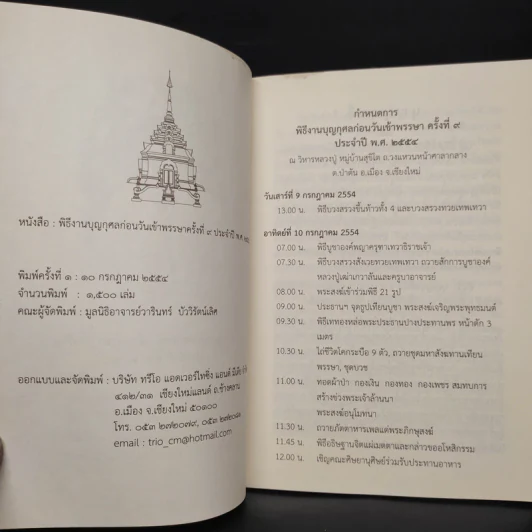 หนังสือ : พิธีงานบุญกุศลก่อนวันเข้าพรรษาครั้งที่ ๙ ประจำปี พ.ศ.
พิมพ์ครั้งที่ ๑ : ๑๐ กรกฎาคม ๒๕๕๔
จำนวนพิมพ์ : ๑,๕๐๐ เล่ม
คณะผู้จัดพิมพ์ : มูลนิธิอาจารย์วารินทร์ บัววิรัตน์เลิศ
ออกแบบและจัดพิมพ์ : บริษัท ทรีโอ แอดเวอร์ไทซิ่ง แอนด์ มีเดีย จำกัด
๔๑๒/๓๑ เชียงใหม่แลนด์ ถ.ช้างคลาน
อ.เมือง จ.เชียงใหม่ ๕๐๑๐๐
โทร. ๐๕๓ ๒๗๒๐๗๙, ๐๕๓
email : trio_cm@hotmail.com
กำหนดการ
พิธีงานบุญกุศลก่อนวันเข้าพรรษา ครั้งที่ ๙
ประจำปี พ.ศ. ๒๕๕๔
ณ วิหารหลวงปู่ หมู่บ้านสุริโต ถ.วงแหวนหน้าศาลากลาง
ต.ป่าตัน อ.เมือง จ.เชียงใหม่
วันเสาร์ที่ 9 กรกฎาคม 2554
13.00 น. พิธีบวงสรวงขึ้นท้าวทั้ง 4 และบวงสรวงทวยเทพเทวา
อาทิตย์ที่ 10 กรกฎาคม 2554
07.00 น. พิธีบูชาองค์พญาครุฑาเทวาธิราชเจ้า
07.30 น. พิธีบวงสรวงสังเวยทวยเทพเทวา ถวายสักการบูชาองค์
หลวงปู่เฒ่าเกวาลันและครูบาอาจารย์
08.00 น. พระสงฆ์เข้าร่วมพิธี 21 รูป
09.00 น. ประธานฯ จุดธูปเทียนบูชา พระสงฆ์เจริญพระพุทธมนต์
09.30 น. พิธีเททองหล่อพระประธานปางประทานพร หน้าตัก 3
เมตร
10.30 น. ไถ่ชีวิตโคกระบือ 9 ตัว, ถวายชุดมหาสังฆทานเทียน
พรรษา, ชุดบวช
11.00 น. ทอดผ้าป่า กองเงิน กองทอง กองเพชร สมทบการ
สร้างช่วงพระเจ้าล้านนา
พระสงฆ์อนุโมทนา
11.30 น. ถวายภัตตาหารเพลแด่พระภิกษุสงฆ์
11.45 น. พิธีอธิษฐานจิตแผ่เมตตาและกล่าวขออโหสิกรรม
12.00 น. เชิญคณะศิษยานุศิษย์ร่วมรับประทานอาหาร